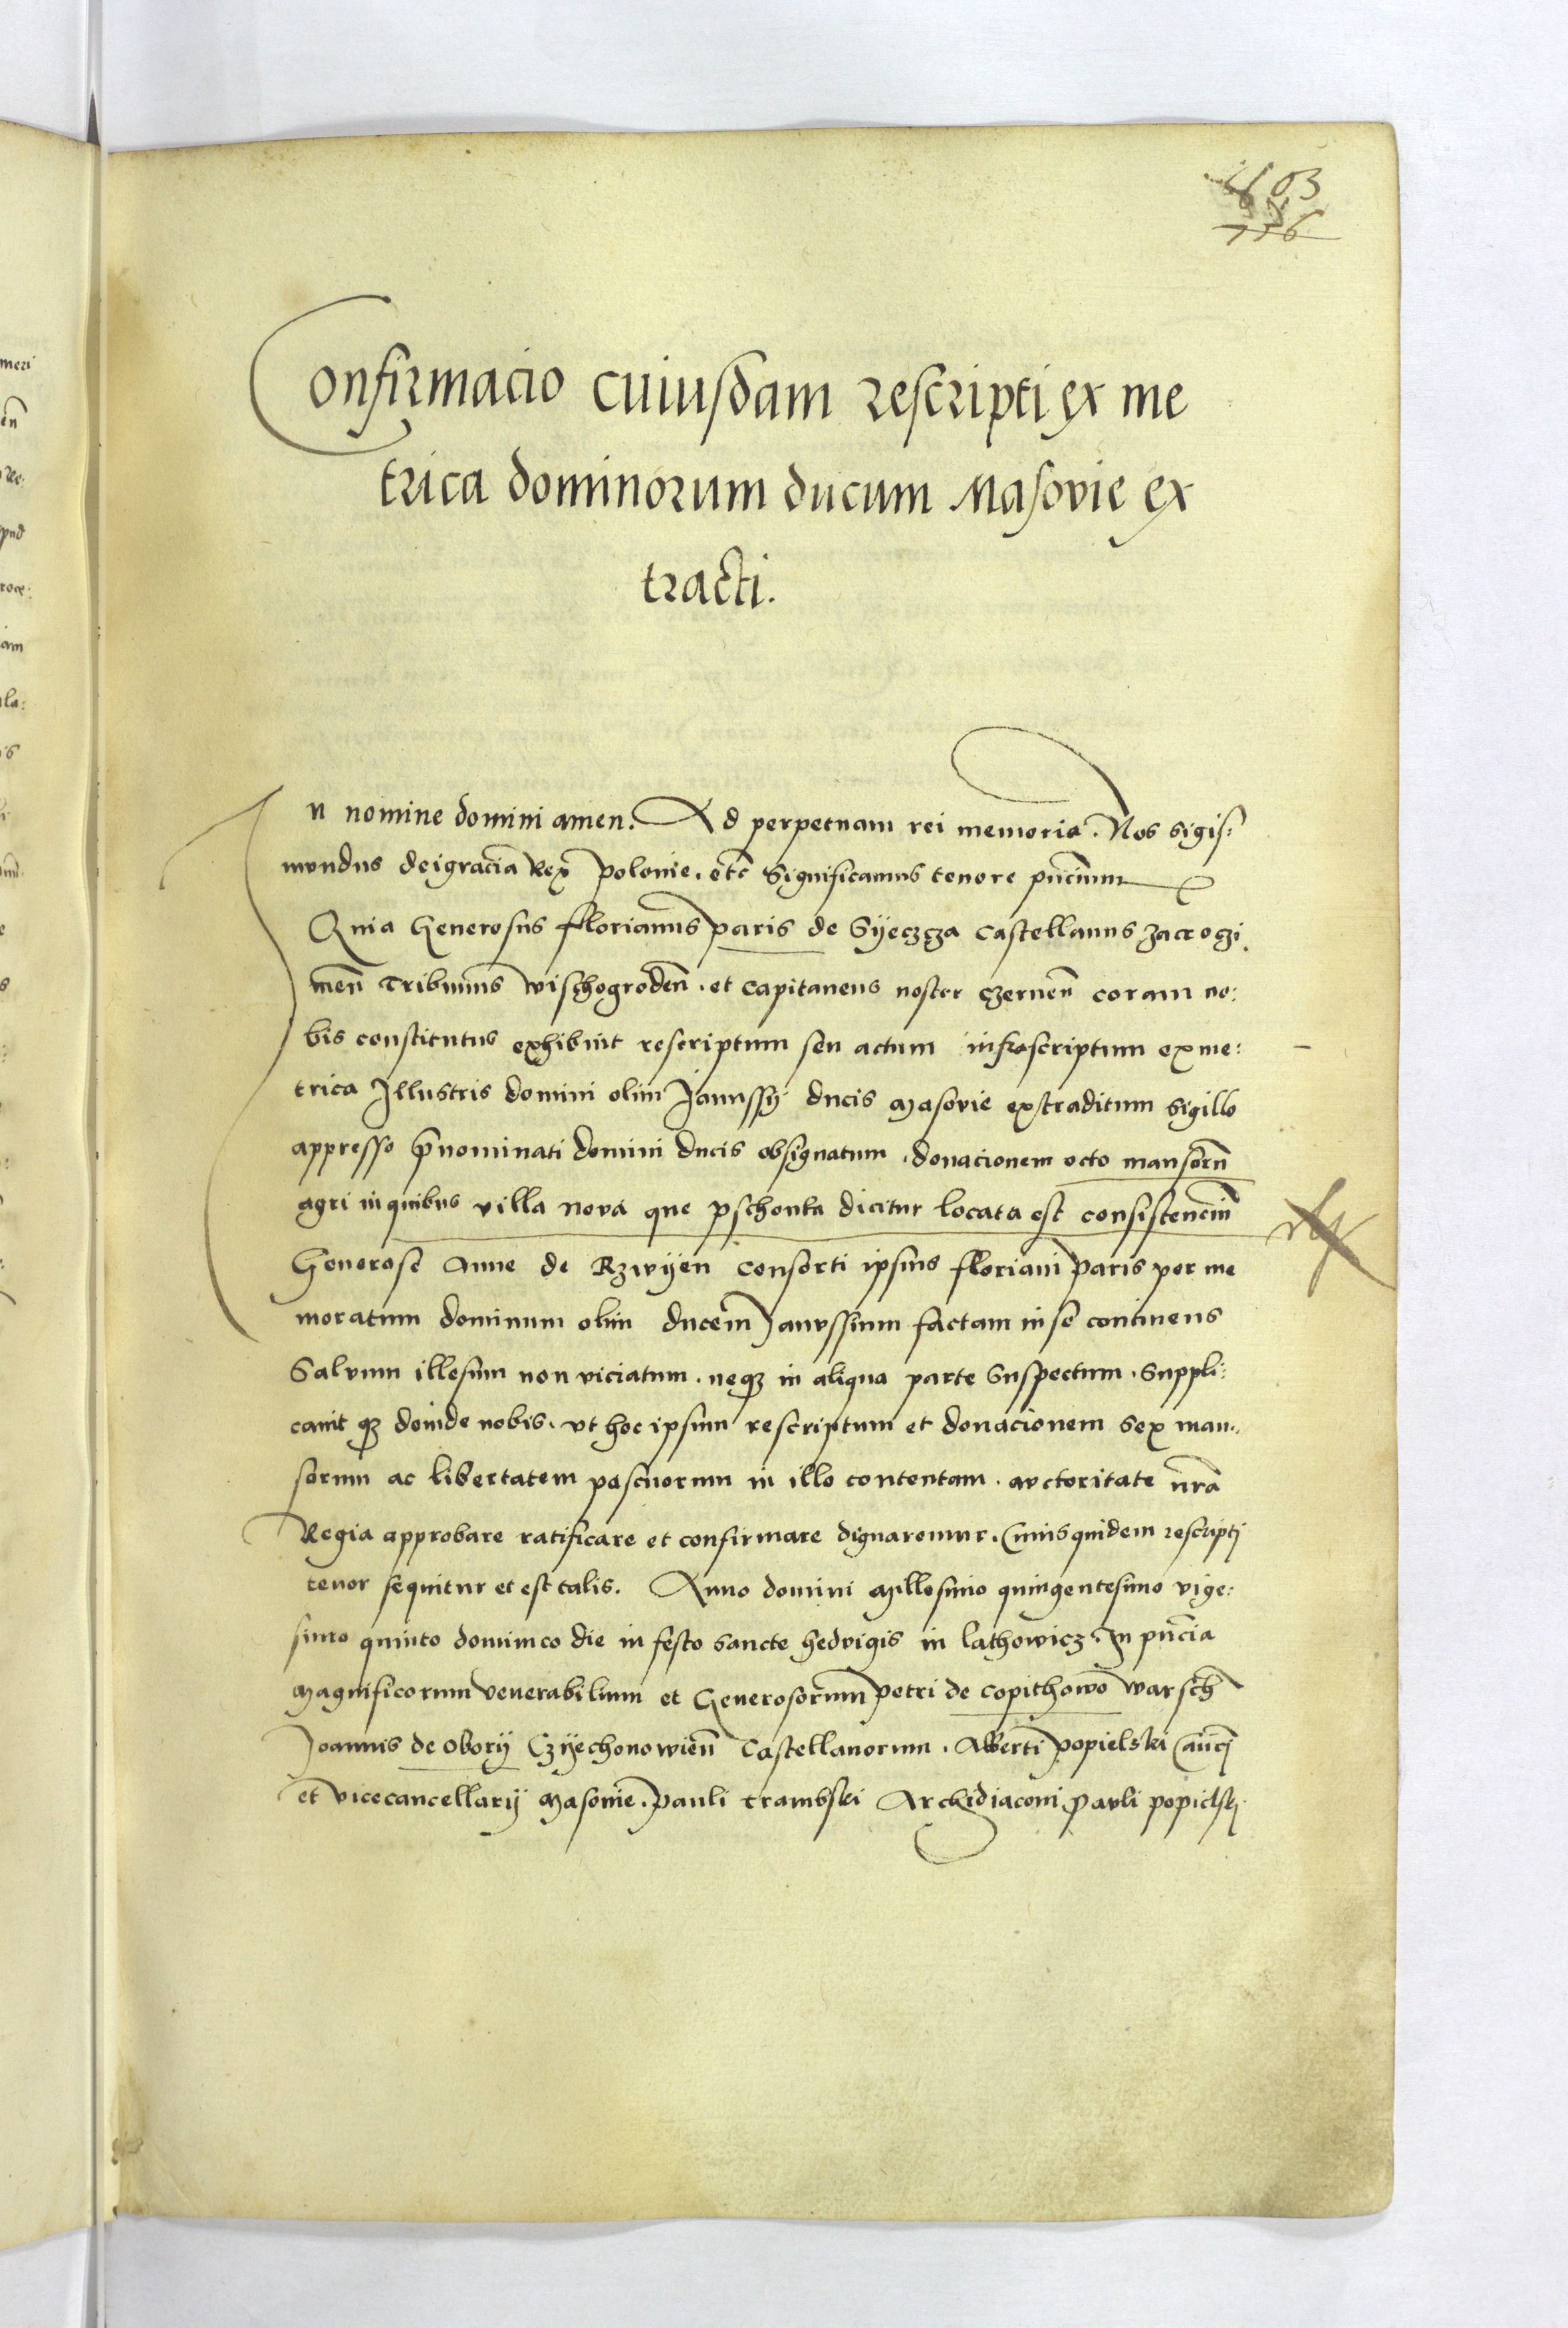 103
Confirmacio cuiusdam rescripti ex me
trica dominorum ducum Masovie ex
tracti.
In nomine domini amen. Ad perpetuam rei memoria. Nos sigis:
mundus dei gracia Rex polonie. etc Significamus tenore pñcium
Quia Generosus Florianus paris de Syeczcza castellanus zacroczi
meñ Tribunus wischogrodeñ. et capitaneus noster czerneñ coram no:
bis constitutus exhibuit rescriptum seu actum infrascriptum ex me:
trica Illustris domini olim Janussÿ ducis masovie extraditum sigillo
appresso p̃nominati domini ducis obsignatum. donacionem octo mansorũ
agri in quibus villa nova que pschonka dicitur locata est consistenciũ
Generose Anne de Rzwÿen consorti ipsius floriani paris per me
moratum dominum olim ducem Janussium factam in se continens
Salvum illesum non viciatum. neqȝ in aliqua parte suspectum. Suppli:
cavit qȝ deinde nobis. ut hoc ipsum rescriptum et donacionem sex man:
sorum ac libertatem pascuorum in illo contentam. auctoritate nr̃a
Regia approbare ratificare et confirmare dignaremur. Cuius quidem rescriptj
tenor sequitur et est talis. Anno domini millesimo quingentesimo vige:
simo quinto dominico die in festo sancte hedvigis in lathowicz. In pñcia
magnificorum venerabilium et Generosorum petri de copithowo warsch̃
Joannis de oborÿ Czÿechonowieñ Castellanorum. Alberti popielski
et vicecancellarÿ masovie. pauli trambski Archidiaconi pauli popielskj